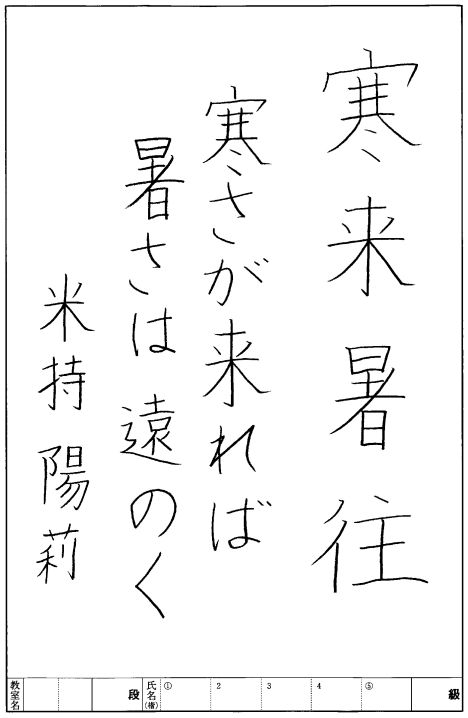 寒来暑往
寒さが来れば
暑さは遠のく
米持陽莉
級
⑤ 4 3 2 ①
氏名(権)
段
教室名